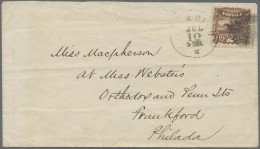 JUL
10
Miss Macpherson
At Miss Webster's
Orthodox and Penn Sts
Frankford
Philada